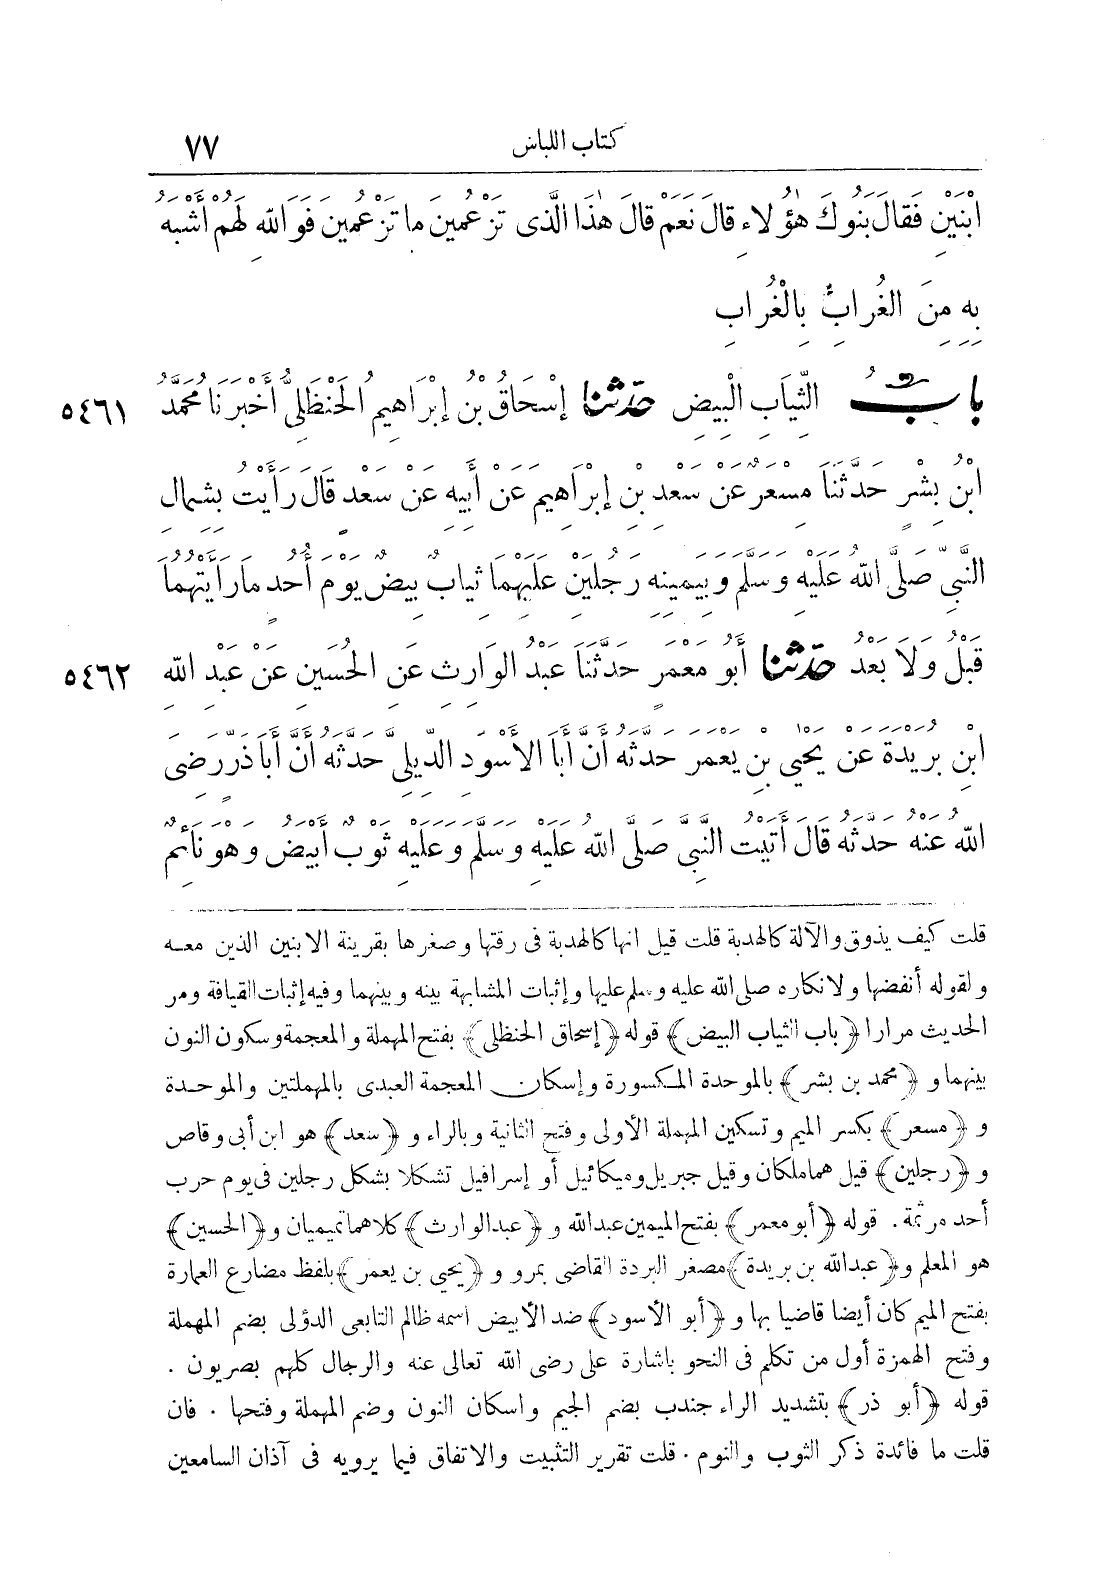 كتاب اللباس
٧٧
ابْنَيْنِ فَقَالَ بَنُوكَ هٰؤُلَاءِ قَالَ نَعَمْ قَالَ هٰذَا الَّذِى تَزْعُمِينَ مَا تَزْعُمِينَ فَوَاللهِ لَهُمْ أَشْبَهُ
بِهِ مِنَ الْغُرَابِ بِالْغُرَابِ
بَابُ الثِّيَابِ الْبِيضِ حَدَّثَنَا إِسْحَاقُ بْنُ إِبْرَاهِيمَ الْحَنْظَلِىُّ أَخْبَرَنَا مُحَمَّدُ ٥٤٦١
ابْنُ بِشْرٍ حَدَّثَنَا مِسْعَرٌ عَنْ سَعْدِ بْنِ إِبْرَاهِيمَ عَنْ أَبِيهِ عَنْ سَعْدٍ قَالَ رَأَيْتُ بِشِمَالِ
النَّبِىِّ صَلَّى اللهُ عَلَيْهِ وَسَلَّمَ وَبِيَمِينِهِ رَجُلَيْنِ عَلَيْهِمَا ثِيَابٌ بِيضٌ يَوْمَ أُحُدٍ مَارَأَيْتُهُمَا
قَبْلُ وَلَا بَعْدُ حَدَّثَنَا أَبُو مَعْمَرٍ حَدَّثَنَا عَبْدُ الْوَارِثِ عَنِ الْحُسَيْنِ عَنْ عَبْدِ اللهِ ٥٤٦٢
ابْنِ بُرَيْدَةَ عَنْ يَحْيَى بْنِ يَعْمَرَ حَدَّثَهُ أَنَّ أَبَا الْأَسْوَدِ الدِّيلِىَّ حَدَّثَهُ أَنَّ أَبَا ذَرٍّ رَضِىَ
اللهُ عَنْهُ حَدَّثَهُ قَالَ أَتَيْتُ النَّبِىَّ صَلَّى اللهُ عَلَيْهِ وَسَلَّمَ وَعَلَيْهِ ثَوْبٌ أَبْيَضُ وَهُوَ نَائِمٌ
قلت كيف يذوق والآلة كالهدبة قلت قيل انها كالهدبة فى رقتها وصغرها بقرينة الابنين الذين معه
ولقوله أنفضها ولانكاره صلى الله عليه وسلم عليها وإثبات المشابهة بينه وبينهما وفيه إثبات القيافة ومر
الحديث مرارا ﴿باب الثياب البيض﴾ قوله ﴿إسحاق الحنظلى﴾ بفتح المهملة والمعجمة وسكون النون
بينهما و ﴿محمد بن بشر﴾ بالموحدة المكسورة وإسكان المعجمة العبدى بالمهملتين والموحدة
و ﴿مسعر﴾ بكسر الميم وتسكين المهملة الأولى وفتح الثانية وبالراء و ﴿سعد﴾ هو ابن أبى وقاص
و ﴿رجلين﴾ قيل هما ملكان وقيل جبريل وميكائيل أو إسرافيل تشكلا بشكل رجلين فى يوم حرب
أحد مر ثمة . قوله ﴿أبو معمر﴾ بفتح الميمين عبدالله و ﴿عبدالوارث﴾ كلاهما تميميان و ﴿الحسين﴾
هو المعلم و ﴿عبدالله بن بريدة﴾ مصغر البردة القاضى بمرو و ﴿يحيى بن يعمر﴾ بلفظ مضارع العمارة
بفتح الميم كان أيضا قاضيا بها و ﴿أبو الأسود﴾ ضد الأبيض اسمه ظالم التابعى الدؤلى بضم المهملة
وفتح الهمزة أول من تكلم فى النحو باشارة على رضى الله تعالى عنه والرجال كلهم بصريون .
قوله ﴿أبو ذر﴾ بتشديد الراء جندب بضم الجيم واسكان النون وضم المهملة وفتحها . فان
قلت ما فائدة ذكر الثوب والنوم . قلت تقرير التثبيت والاتفاق فيما يرويه فى آذان السامعين